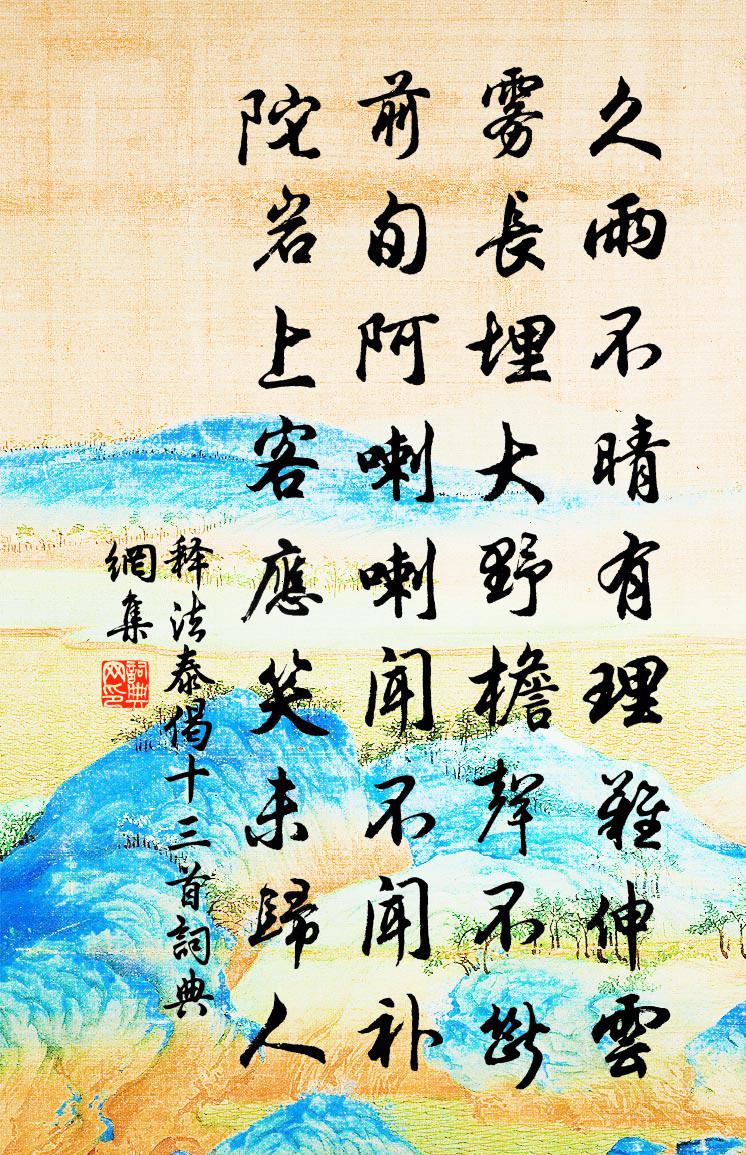 久雨不晴有理難伸雲
雾長埋大野檐聲不斷
前旬阿喇喇聞不聞补
陀岩上客應笑未歸人
释法泰偈十三首詞典
網集
詞典網印